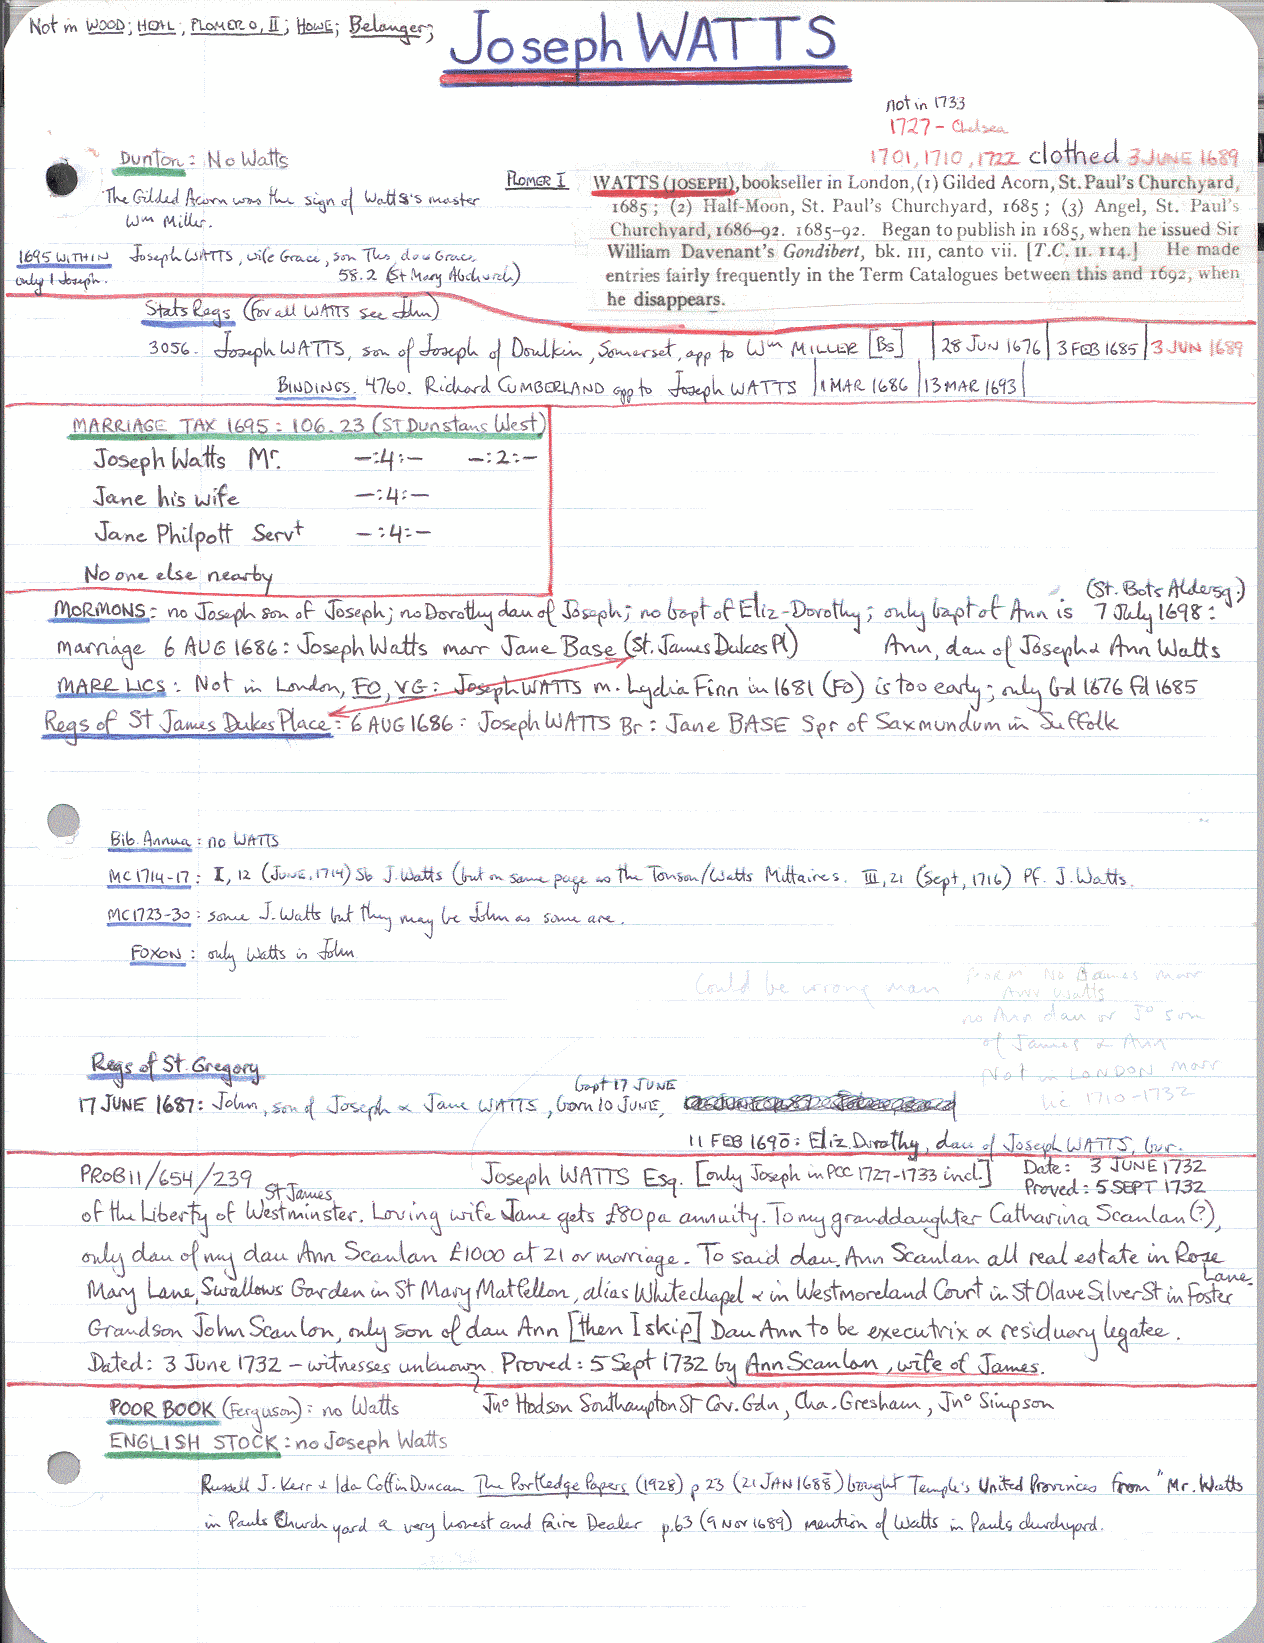 Not in WOOD; HEAL; PLOMER O, II; HOWE; Belanger;
Joseph WATTS
not in 1733
1727 - Chelsea
1701, 1710, 1722 clothed 3 JUNE 1689
DUNTON: No Watts
The Gilded Acorn was the sign of Watts's master
Wm Miller.
PLOMER I
WATTS (JOSEPH), bookseller in London, (1) Gilded Acorn, St. Paul's Churchyard,
1685; (2) Half-Moon, St. Paul's Churchyard, 1685; (3) Angel, St. Paul's
Churchyard, 1686-92. 1685-92. Began to publish in 1685, when he issued Sir
William Davenant's Gondibert, bk. III, canto vii. [T.C. II. 114.] He made
entries fairly frequently in the Term Catalogues between this and 1692, when
he disappears.
1695 WITHIN Joseph WATTS, wife Grace, son Tho, dau Grace
only 1 Joseph. 58.2 (St Mary Abchurch)
Stats Regs (for all WATTS see John)
3056. Joseph WATTS, son of Joseph of Doulkin, Somerset, app to Wm MILLER [BS] | 28 JUN 1676 | 3 FEB 1685 | 3 JUN 1689
BINDINGS. 4760. Richard CUMBERLAND app to Joseph WATTS | 1 MAR 1686 | 13 MAR 1693 |
MARRIAGE TAX 1695: 106.23 (ST Dunstans West)
Joseph Watts Mr. -:4:- -:2:-
Jane his wife -:4:-
Jane Philpott Servt -:4:-
No one else nearby
(St. Bots Aldersg.)
MORMONS: no Joseph son of Joseph; no Dorothy dau of Joseph; no bapt of Eliz-Dorothy; only bapt of Ann is 7 July 1698:
marriage 6 AUG 1686: Joseph Watts marr Jane Base (St. James Dukes Pl) Ann, dau of Joseph & Ann Watts
MARR LICS: Not in London, FO, VG: Joseph WATTS m. Lydia Finn in 1681 (FO) is too early; only bd 1676 fd 1685
Regs of St James Dukes Place: 6 AUG 1686: Joseph WATTS Br: Jane BASE Spr of Saxmundum in Suffolk
Bib. Annua: no WATTS
MC 1714-17: I, 12 (JUNE, 1714) Sb J. Watts (but on same page as the Tonson/Watts Mittaires. III, 21 (Sept, 1716) Pf. J. Watts.
MC 1723-30: some J. Watts but they may be John as some are.
FOXON: only Watts is John
Could be wrong man
MORM No James marr
Ann Watts
no Ann dau or Jo son
of James & Ann
Not in LONDON marr
lic 1710-1732
Regs of St. Gregory
bapt 17 JUNE
17 JUNE 1687: John, son of Joseph & Jane WATTS, born 10 JUNE,
11 FEB 1690: Eliz. Dorothy, dau of Joseph WATTS, bur.
PROB 11/654/239 Joseph WATTS Esq. [only Joseph in PCC 1727-1733 incl.] Date: 3 JUNE 1732
Proved: 5 SEPT 1732
St James
of the Liberty of Westminster. Loving wife Jane gets £80 pa annuity. To my granddaughter Catharina Scanlan (?),
only dau of my dau Ann Scanlan £1000 at 21 or marriage. To said dau. Ann Scanlan all real estate in Rose
Mary Lane, Swallows Garden in St Mary Matfellon, alias Whitechapel & in Westmoreland Court in St Olave Silver St in Foster Lane.
Grandson John Scanlon, only son of dau Ann [then I skip] Dau Ann to be executrix & residuary legatee.
Dated: 3 June 1732 - witnesses unknown. Proved: 5 Sept 1732 by Ann Scanlan, wife of James.
POOR BOOK (Ferguson): no Watts Jno Hodson Southampton St Cov. Gdn, Cha. Gresham, Jno Simpson
ENGLISH STOCK: no Joseph Watts
Russell J. Kerr & Ida Coffin Duncan The Portledge Papers (1928) p 23 (21 JAN 1688) bought Temple's United Provinces from "Mr. Watts
in Pauls Church yard a very honest and faire Dealer p. 63 (9 NOV 1689) mention of Watts in Pauls churchyard.